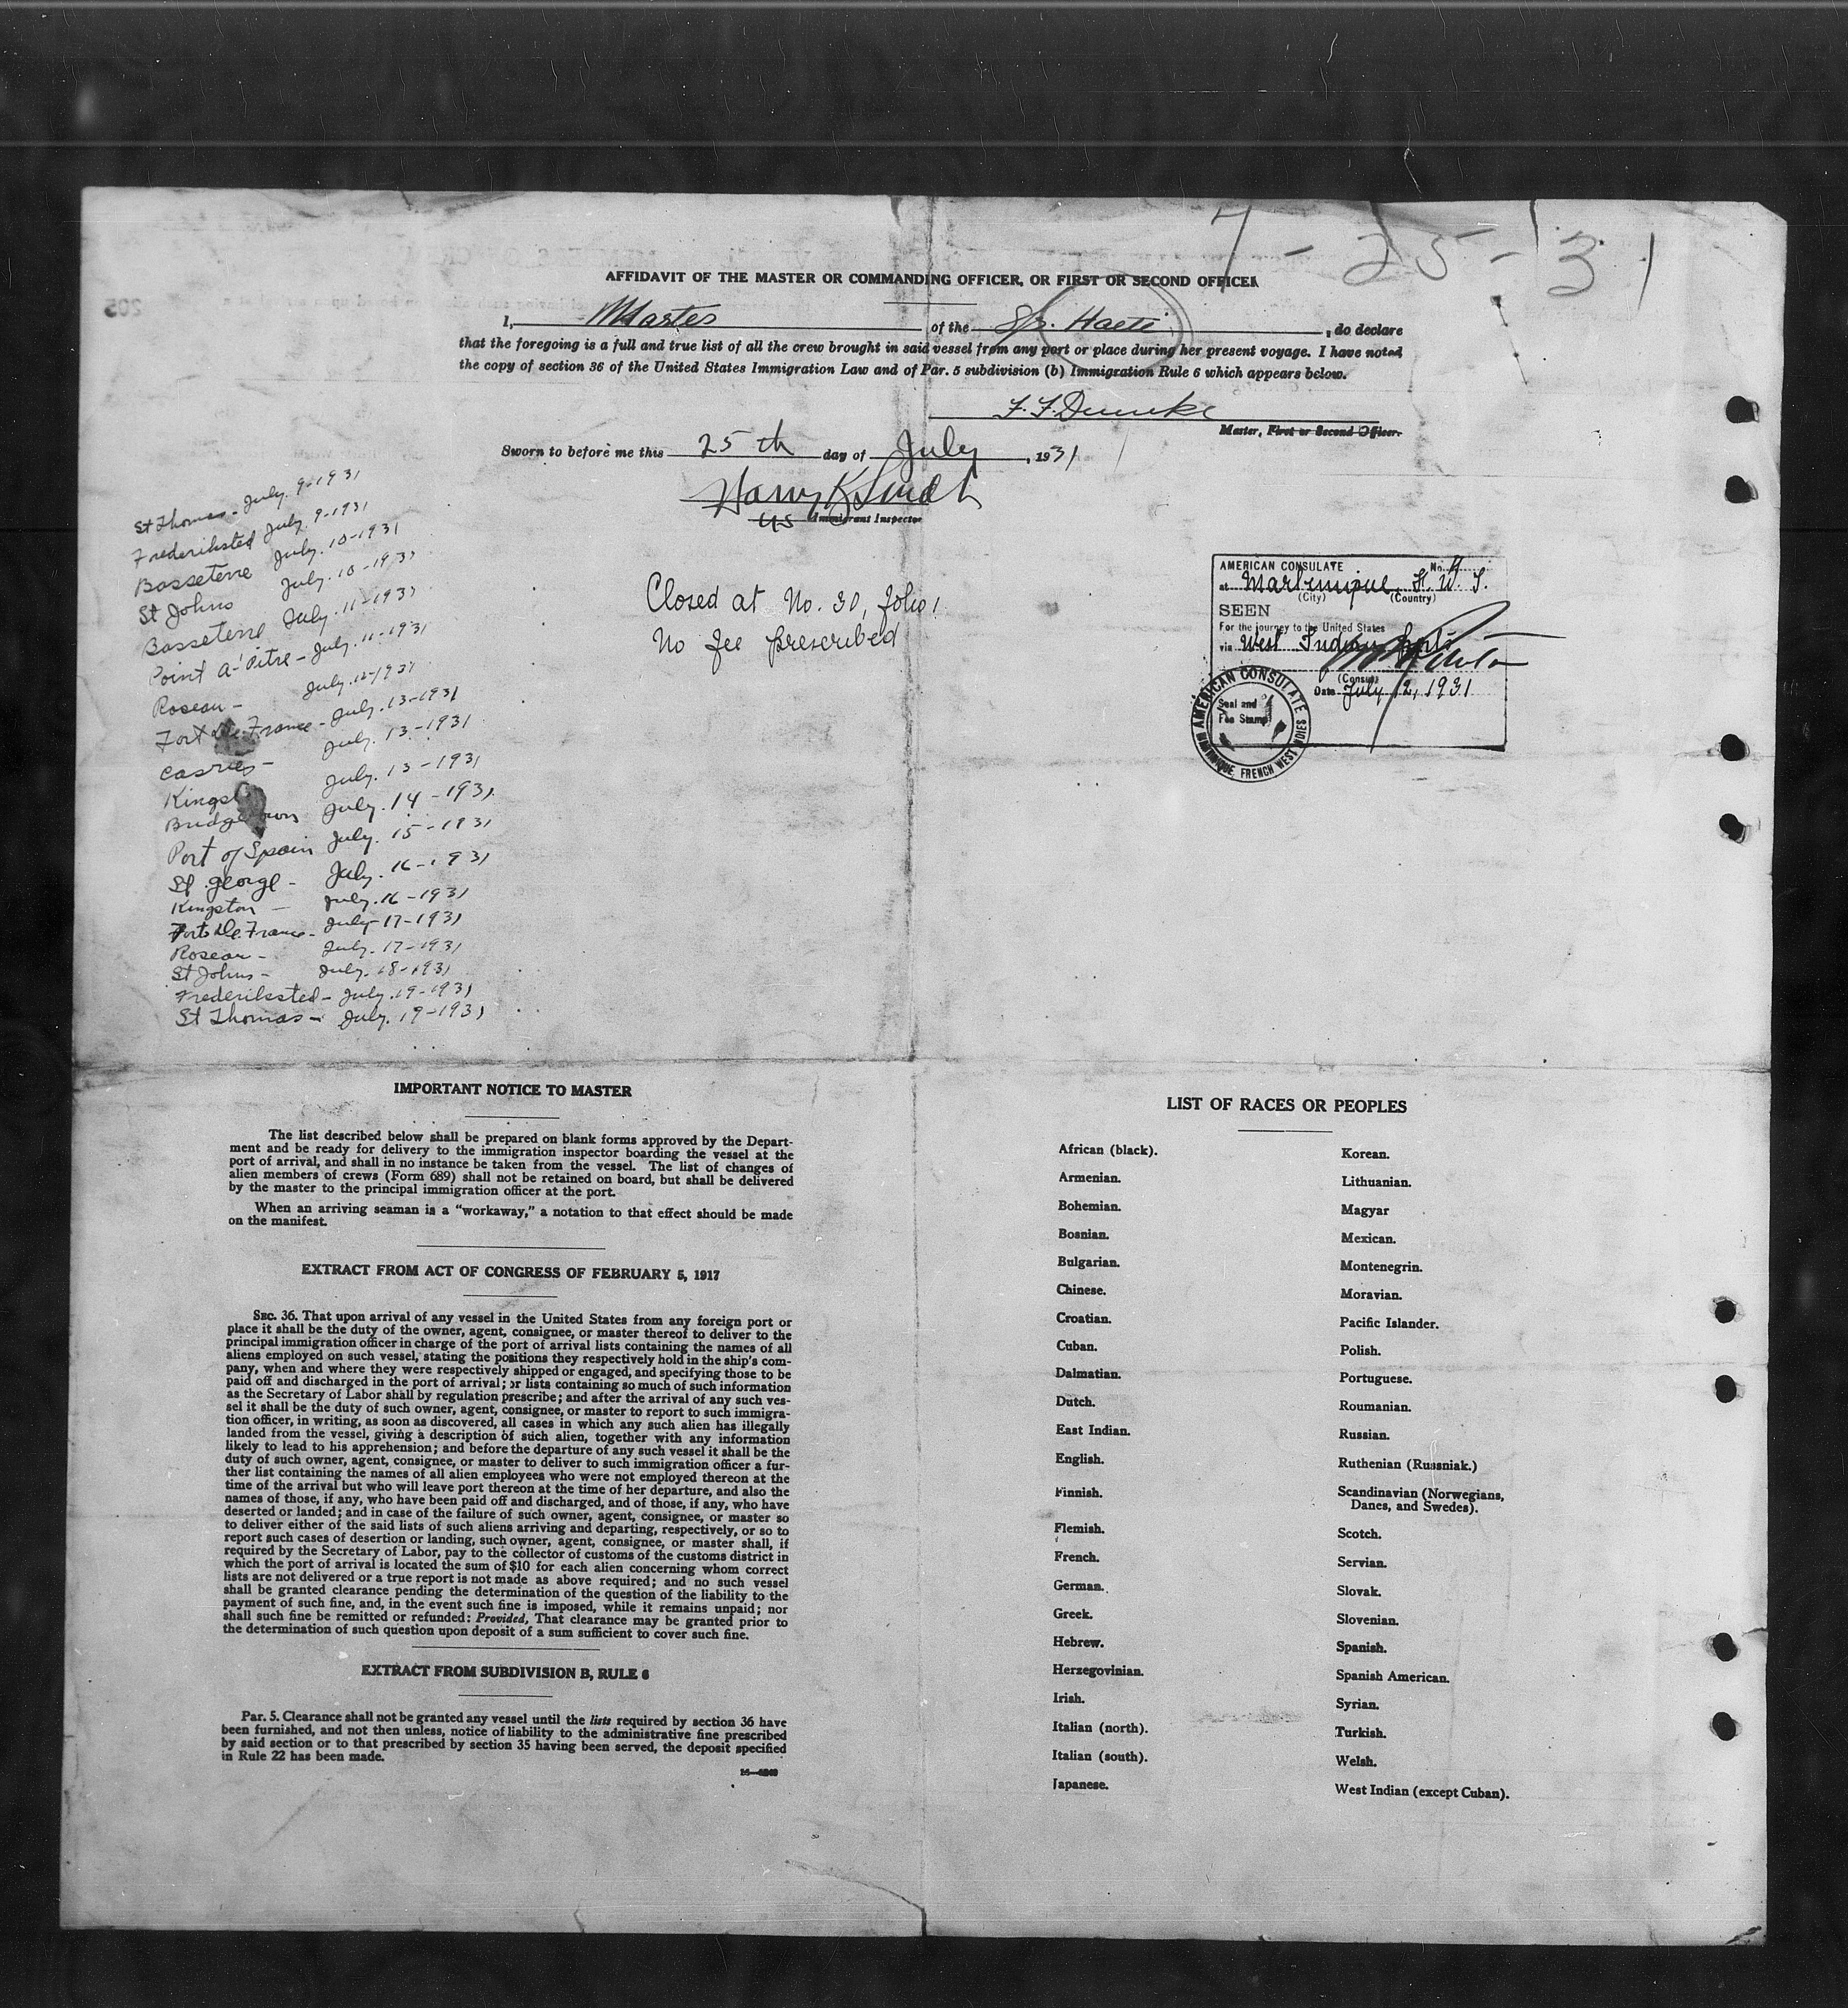 7-25-31
205
AFFIDAVIT OF THE MASTER OR COMMANDING OFFICER, OR FIRST OR SECOND OFFICER
I, Master of the S/S. Haeti, do declare
that the foregoing is a full and true list of all the crew brought in said vessel from any port or place during her present voyage. I have noted
the copy of section 36 of the United States Immigration Law and of Par. 5 subdivision (b) Immigration Rule 6 which appears below.
Master, First or Second Officer.
Sworn to before me this 25th day of July, 1931
Harry K
US Immigrant Inspector
St Thomas - July. 9-1931
Frederiksted July. 9-1931
Basseterre July. 10-1931
St Johns July. 10-1931
Basseterre July. 11-1931
Point A'Pitre - July. 11-1931
Roseau - July. 12-1931
Fort De France - July. 13-1931
Castries - July. 13-1931
Kingst July. 13-1931
Bridgetown July. 14-1931
Port of Spain July. 15-1931
St. George - July. 16-1931
Kingston - July. 16-1931
Fort De France - July-17-1931
Roseau - July. 17-1931
St Johns - July. 18-1931
Frederiksted - July. 19-1931
St Thomas - July. 19-1931
Closed at No. 30, folio 1
No fee prescribed
AMERICAN CONSULATE No.
at Martinique, F. W. I.
(City) (Country)
SEEN
For the journey to the United States
via West Indian Ports
(Consul)
Date July 12, 1931
Seal and
Fee Stamp
AMERICAN CONSULATE
MARTINIQUE, FRENCH WEST INDIES
IMPORTANT NOTICE TO MASTER
The list described below shall be prepared on blank forms approved by the Depart-
ment and be ready for delivery to the immigration inspector boarding the vessel at the
port of arrival, and shall in no instance be taken from the vessel. The list of changes of
alien members of crews (Form 689) shall not be retained on board, but shall be delivered
by the master to the principal immigration officer at the port.
When an arriving seaman is a "workaway," a notation to that effect should be made
on the manifest.
EXTRACT FROM ACT OF CONGRESS OF FEBRUARY 5, 1917
SEC. 36. That upon arrival of any vessel in the United States from any foreign port or
place it shall be the duty of the owner, agent, consignee, or master thereof to deliver to the
principal immigration officer in charge of the port of arrival lists containing the names of all
aliens employed on such vessel, stating the positions they respectively hold in the ship's com-
pany, when and where they were respectively shipped or engaged, and specifying those to be
paid off and discharged in the port of arrival; or lists containing so much of such information
as the Secretary of Labor shall by regulation prescribe; and after the arrival of any such ves-
sel it shall be the duty of such owner, agent, consignee, or master to report to such immigra-
tion officer, in writing, as soon as discovered, all cases in which any such alien has illegally
landed from the vessel, giving a description of such alien, together with any information
likely to lead to his apprehension; and before the departure of any such vessel it shall be the
duty of such owner, agent, consignee, or master to deliver to such immigration officer a fur-
ther list containing the names of all alien employees who were not employed thereon at the
time of the arrival but who will leave port thereon at the time of her departure, and also the
names of those, if any, who have been paid off and discharged, and of those, if any, who have
deserted or landed; and in case of the failure of such owner, agent, consignee, or master so
to deliver either of the said lists of such aliens arriving and departing, respectively, or so to
report such cases of desertion or landing, such owner, agent, consignee, or master shall, if
required by the Secretary of Labor, pay to the collector of customs of the customs district in
which the port of arrival is located the sum of $10 for each alien concerning whom correct
lists are not delivered or a true report is not made as above required; and no such vessel
shall be granted clearance pending the determination of the question of the liability to the
payment of such fine, and, in the event such fine is imposed, while it remains unpaid; nor
shall such fine be remitted or refunded: Provided, That clearance may be granted prior to
the determination of such question upon deposit of a sum sufficient to cover such fine.
EXTRACT FROM SUBDIVISION B, RULE 6
Par. 5. Clearance shall not be granted any vessel until the lists required by section 36 have
been furnished, and not then unless, notice of liability to the administrative fine prescribed
by said section or to that prescribed by section 35 having been served, the deposit specified
in Rule 22 has been made.
LIST OF RACES OR PEOPLES
African (black).
Armenian.
Bohemian.
Bosnian.
Bulgarian.
Chinese.
Croatian.
Cuban.
Dalmatian.
Dutch.
East Indian.
English.
Finnish.
Flemish.
French.
German.
Greek.
Hebrew.
Herzegovinian.
Irish.
Italian (north).
Italian (south).
Japanese.
Korean.
Lithuanian.
Magyar
Mexican.
Montenegrin.
Moravian.
Pacific Islander.
Polish.
Portuguese.
Roumanian.
Russian.
Ruthenian (Russniak.)
Scandinavian (Norwegians,
Danes, and Swedes).
Scotch.
Servian.
Slovak.
Slovenian.
Spanish.
Spanish American.
Syrian.
Turkish.
Welsh.
West Indian (except Cuban).